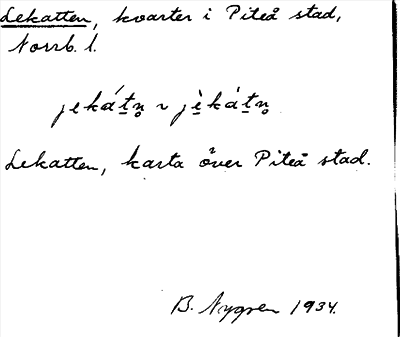 Lekatten, kvarter i Piteå stad,
Norrb. l.
jekát̠n̥ ~ jè̠ká t̠n̥
Lekatten, karta över Piteå stad.
B. Nygren 1934.